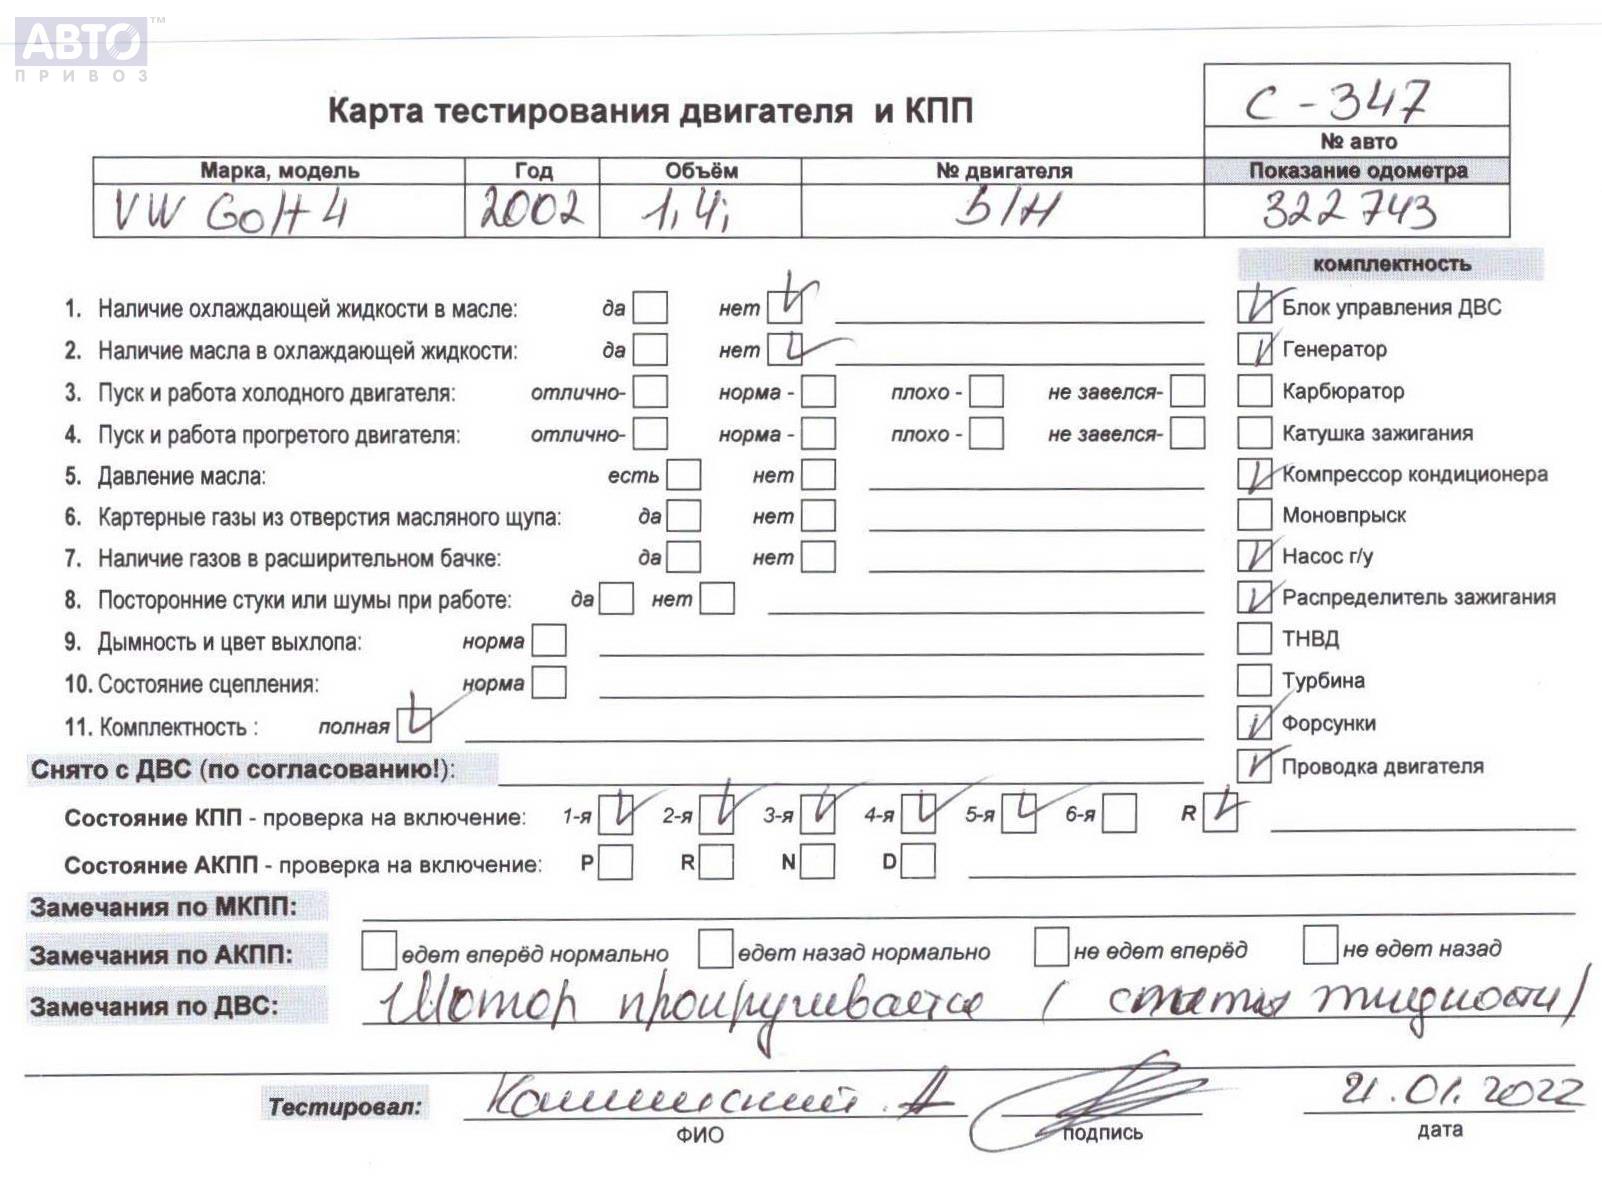 АВТО™
ПРИВОЗ
Карта тестирования двигателя и КПП
С - 347
№ авто
Марка, модель Год Объём № двигателя Показание одометра
VW Golf 4 2002 1,4i Б/Н 322 743
комплектность
1. Наличие охлаждающей жидкости в масле: да нет Блок управления ДВС
2. Наличие масла в охлаждающей жидкости: да нет Генератор
3. Пуск и работа холодного двигателя: отлично- норма - плохо - не завелся- Карбюратор
4. Пуск и работа прогретого двигателя: отлично- норма - плохо - не завелся- Катушка зажигания
5. Давление масла: есть нет Компрессор кондиционера
6. Картерные газы из отверстия масляного щупа: да нет Моновпрыск
7. Наличие газов в расширительном бачке: да нет Насос г/у
8. Посторонние стуки или шумы при работе: да нет Распределитель зажигания
9. Дымность и цвет выхлопа: норма ТНВД
10. Состояние сцепления: норма Турбина
11. Комплектность : полная Форсунки
Снято с ДВС (по согласованию!): Проводка двигателя
Состояние КПП - проверка на включение: 1-я 2-я 3-я 4-я 5-я 6-я R
Состояние АКПП - проверка на включение: P R N D
Замечания по МКПП:
Замечания по АКПП: едет вперёд нормально едет назад нормально не едет вперёд не едет назад
Замечания по ДВС: Мотор прокручивается ( жидкости)
Тестировал: А 21.01.2022
ФИО подпись дата